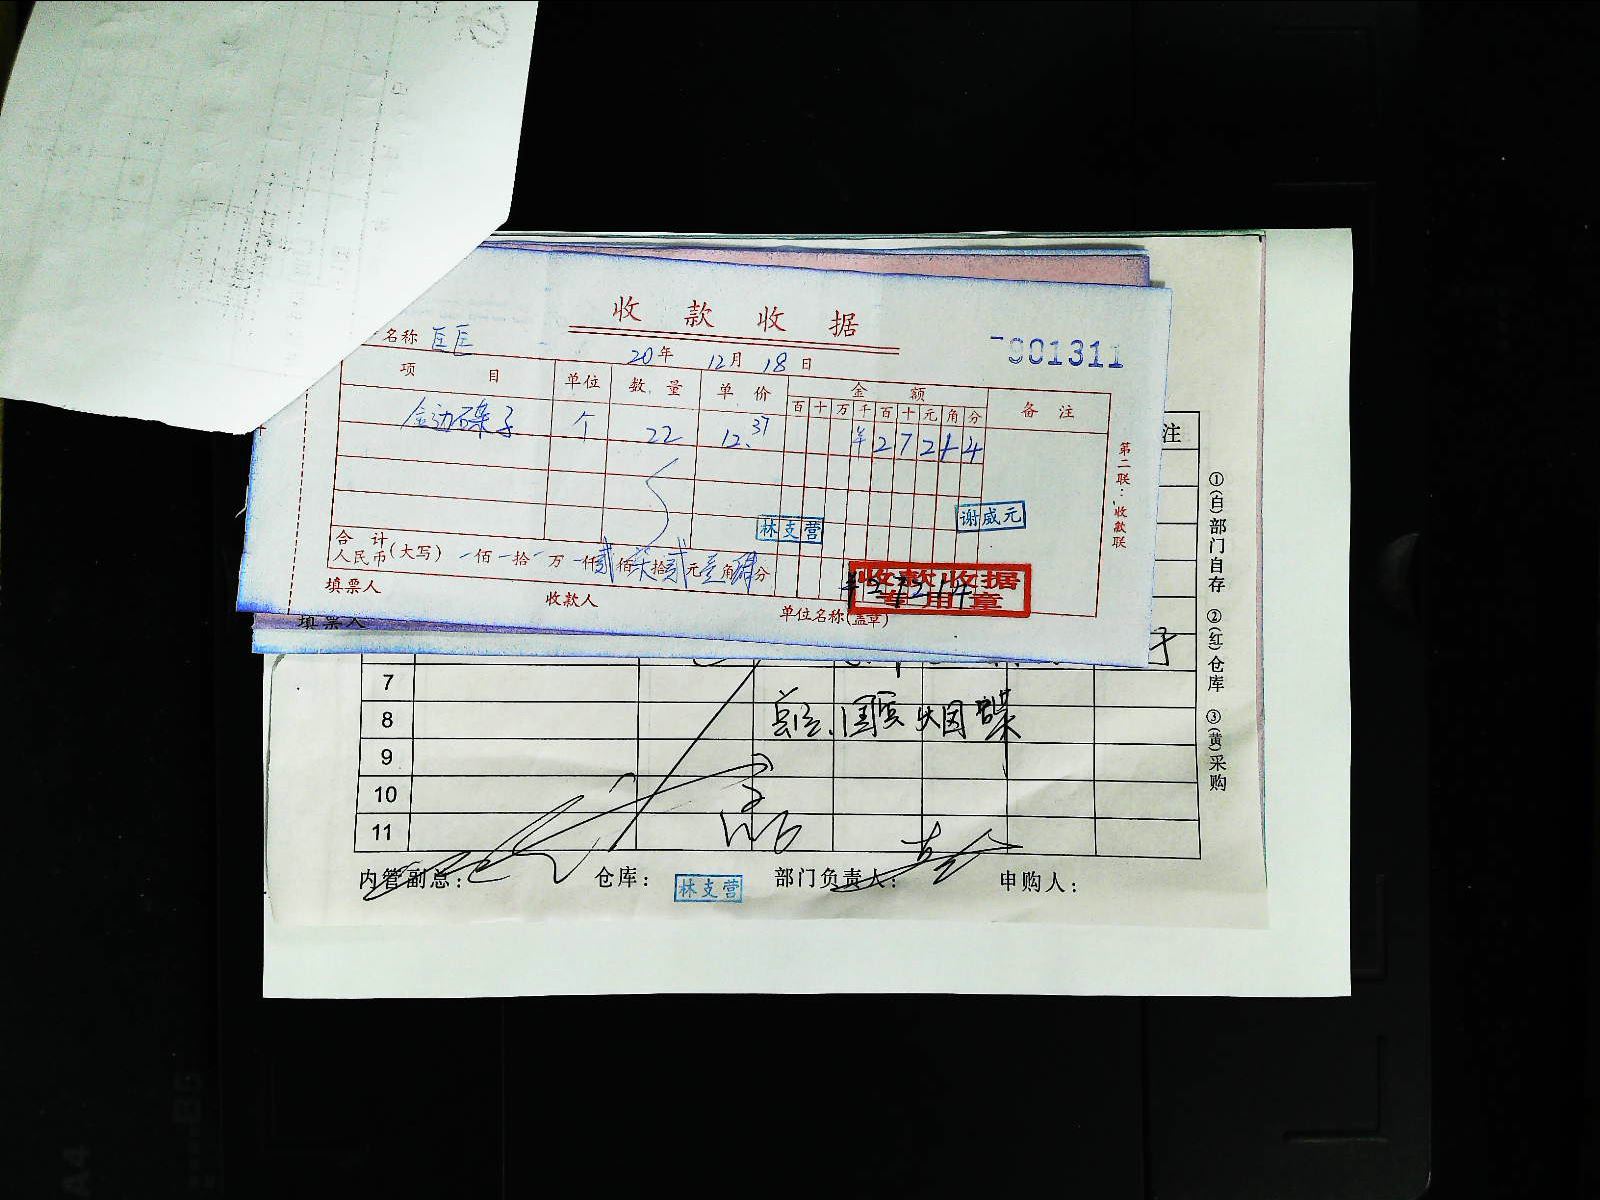 收款收据
名称 匡匡
20年 12月 18日
001311
项目 单位 数量 单价 金额 备注
百十万千百十元角分
金边碟子 个 22 12.37 ¥27214
林支营
谢威元
合计
人民币(大写) 佰 拾 万 仟贰佰柒拾贰元壹角肆分
¥272.14
收款收据
专用章
填票人 收款人 单位名称(盖章)
第二联:收款联
填票人
注
7
8
9
10
11
内管副总: 仓库: 林支营 部门负责人: 申购人:
①(白)部门自存 ②(红)仓库 ③(黄)采购
A4
B5